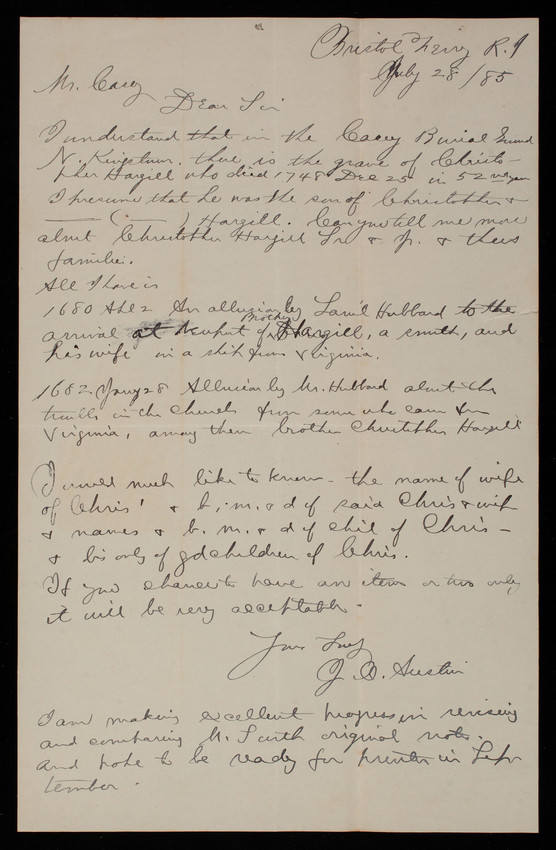 Bristol Ferry R.I
July 28/85
Mr. Casey
Dear Sir
I understand that in the Casey Burial Ground
N. Kingstown. there is the grave of Christo-
pher Hargill who died 1748 Dec 25 in 52
I presume that he was the son of Christopher &
——— ( ——— ) Hargill. Can you tell me more
about Christopher Hargill Sr. & Jr. & their
familie.
All I have is
1680 An allusion by Sam'l Hubbard to the
arrival at Newport of brother Hargill, a smith, and
his wife in a ship from Virginia.
1682 Jany 28 Allusion by Mr. Hubbard about the
trouble in the Church from some who came from
Virginia, among them brother Christopher Hargill
I would much like to know - the name of wife
of Chris' & b., m. & d of said Chris & wife
& names & b. m. & d of chil of Chris -
& bis only of gdchildren of Chris.
If you chance to have an item or two only
it will be very acceptable -
Yours Truly
J. O. Austin
I am making excellent progress in revising
and comparing with original notes.
and hope to be ready for printer in Sep
tember -